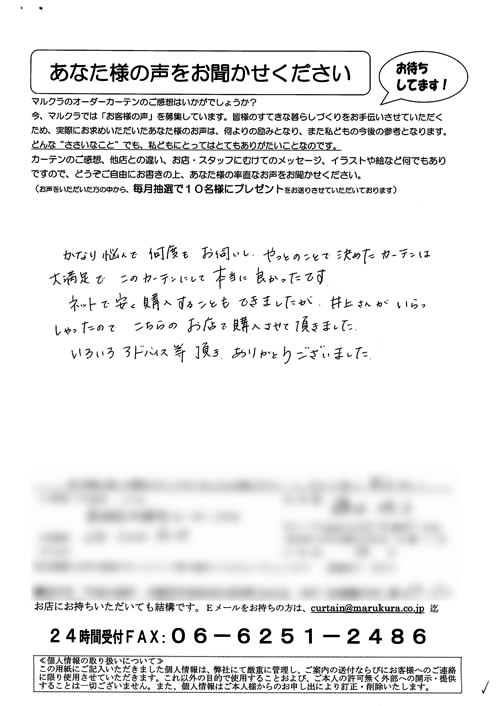 あなた様の声をお聞かせください
お待ち
してます！
マルクラのオーダーカーテンのご感想はいかがでしょうか？
今、マルクラでは「お客様の声」を募集しています。皆様のすてきな暮らしづくりをお手伝いさせていただく
ため、実際にお求めいただいたあなた様のお声は、何よりの励みとなり、また私どもの今後の参考となります。
どんな“ささいなこと”でも、私どもにとってはとてもありがたいことなのです。
カーテンのご感想、他店との違い、お店・スタッフにむけてのメッセージ、イラストや絵など何でもあり
ですので、どうぞご自由にお書きの上、あなた様の率直なお声をお聞かせください。
（お声をいただいた方の中から、毎月抽選で１０名様にプレゼントをお送りさせていただいております）
かなり悩んで 何度も お伺いし、やっとのことで決めたカーテンは
大満足で このカーテンにして 本当に良かったです
ネットで安く購入することもできましたが、井上さんがいらっ
しゃったので こちらのお店で購入させて頂きました。
いろいろアドバイス等 頂き、ありがとうございました
お店にお持ちいただいても結構です。Ｅメールをお持ちの方は、curtain@marukura.co.jp 迄
２４時間受付FAX：０６－６２５１－２４８６
≪個人情報の取り扱いについて≫
この用紙にご記入いただきました個人情報は、弊社にて厳重に管理し、ご案内の送付ならびにお客様へのご連絡
に限り使用させていただきます。これ以外の目的で使用することおよび、ご本人の許可無く外部への開示・提供
することは一切ございません。また、個人情報はご本人様からのお申し出により訂正・削除いたします。